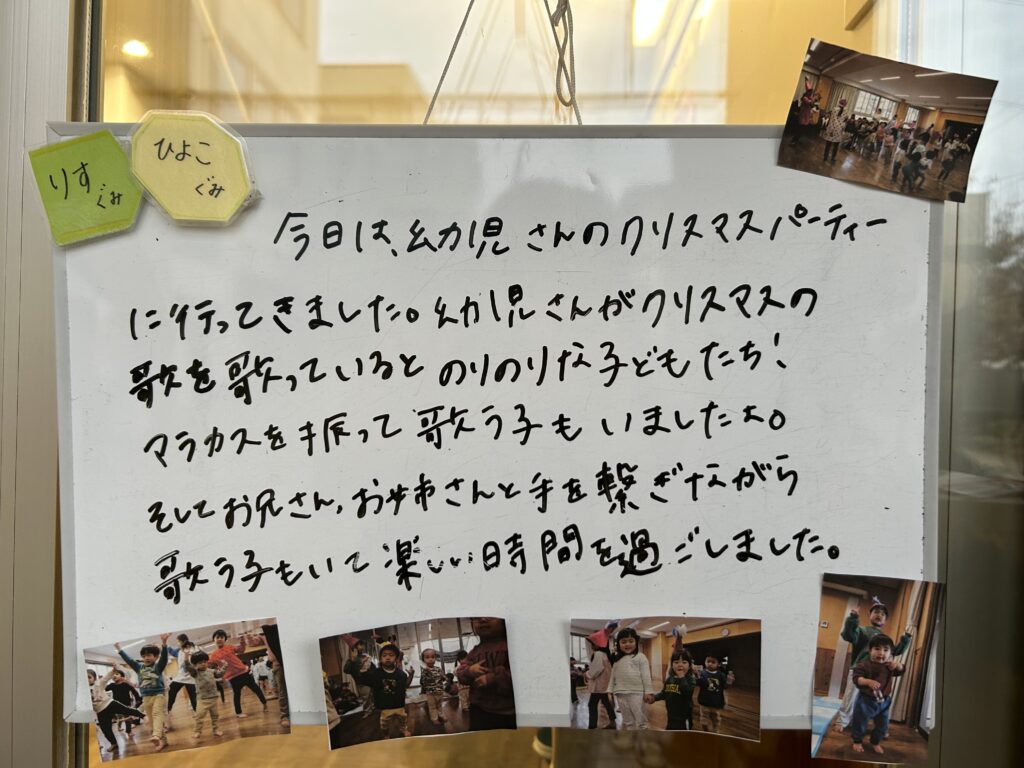 りす
ぐみ
ひよこ
ぐみ
今日は、幼児さんのクリスマスパーティー
に行ってきました。幼児さんがクリスマスの
歌を歌っているとのりのりな子どもたち!
マラカスを振って歌う子もいましたよ。
そしてお兄さん、お姉さんと手を繋ぎながら
歌う子もいて楽しい時間を過ごしました。